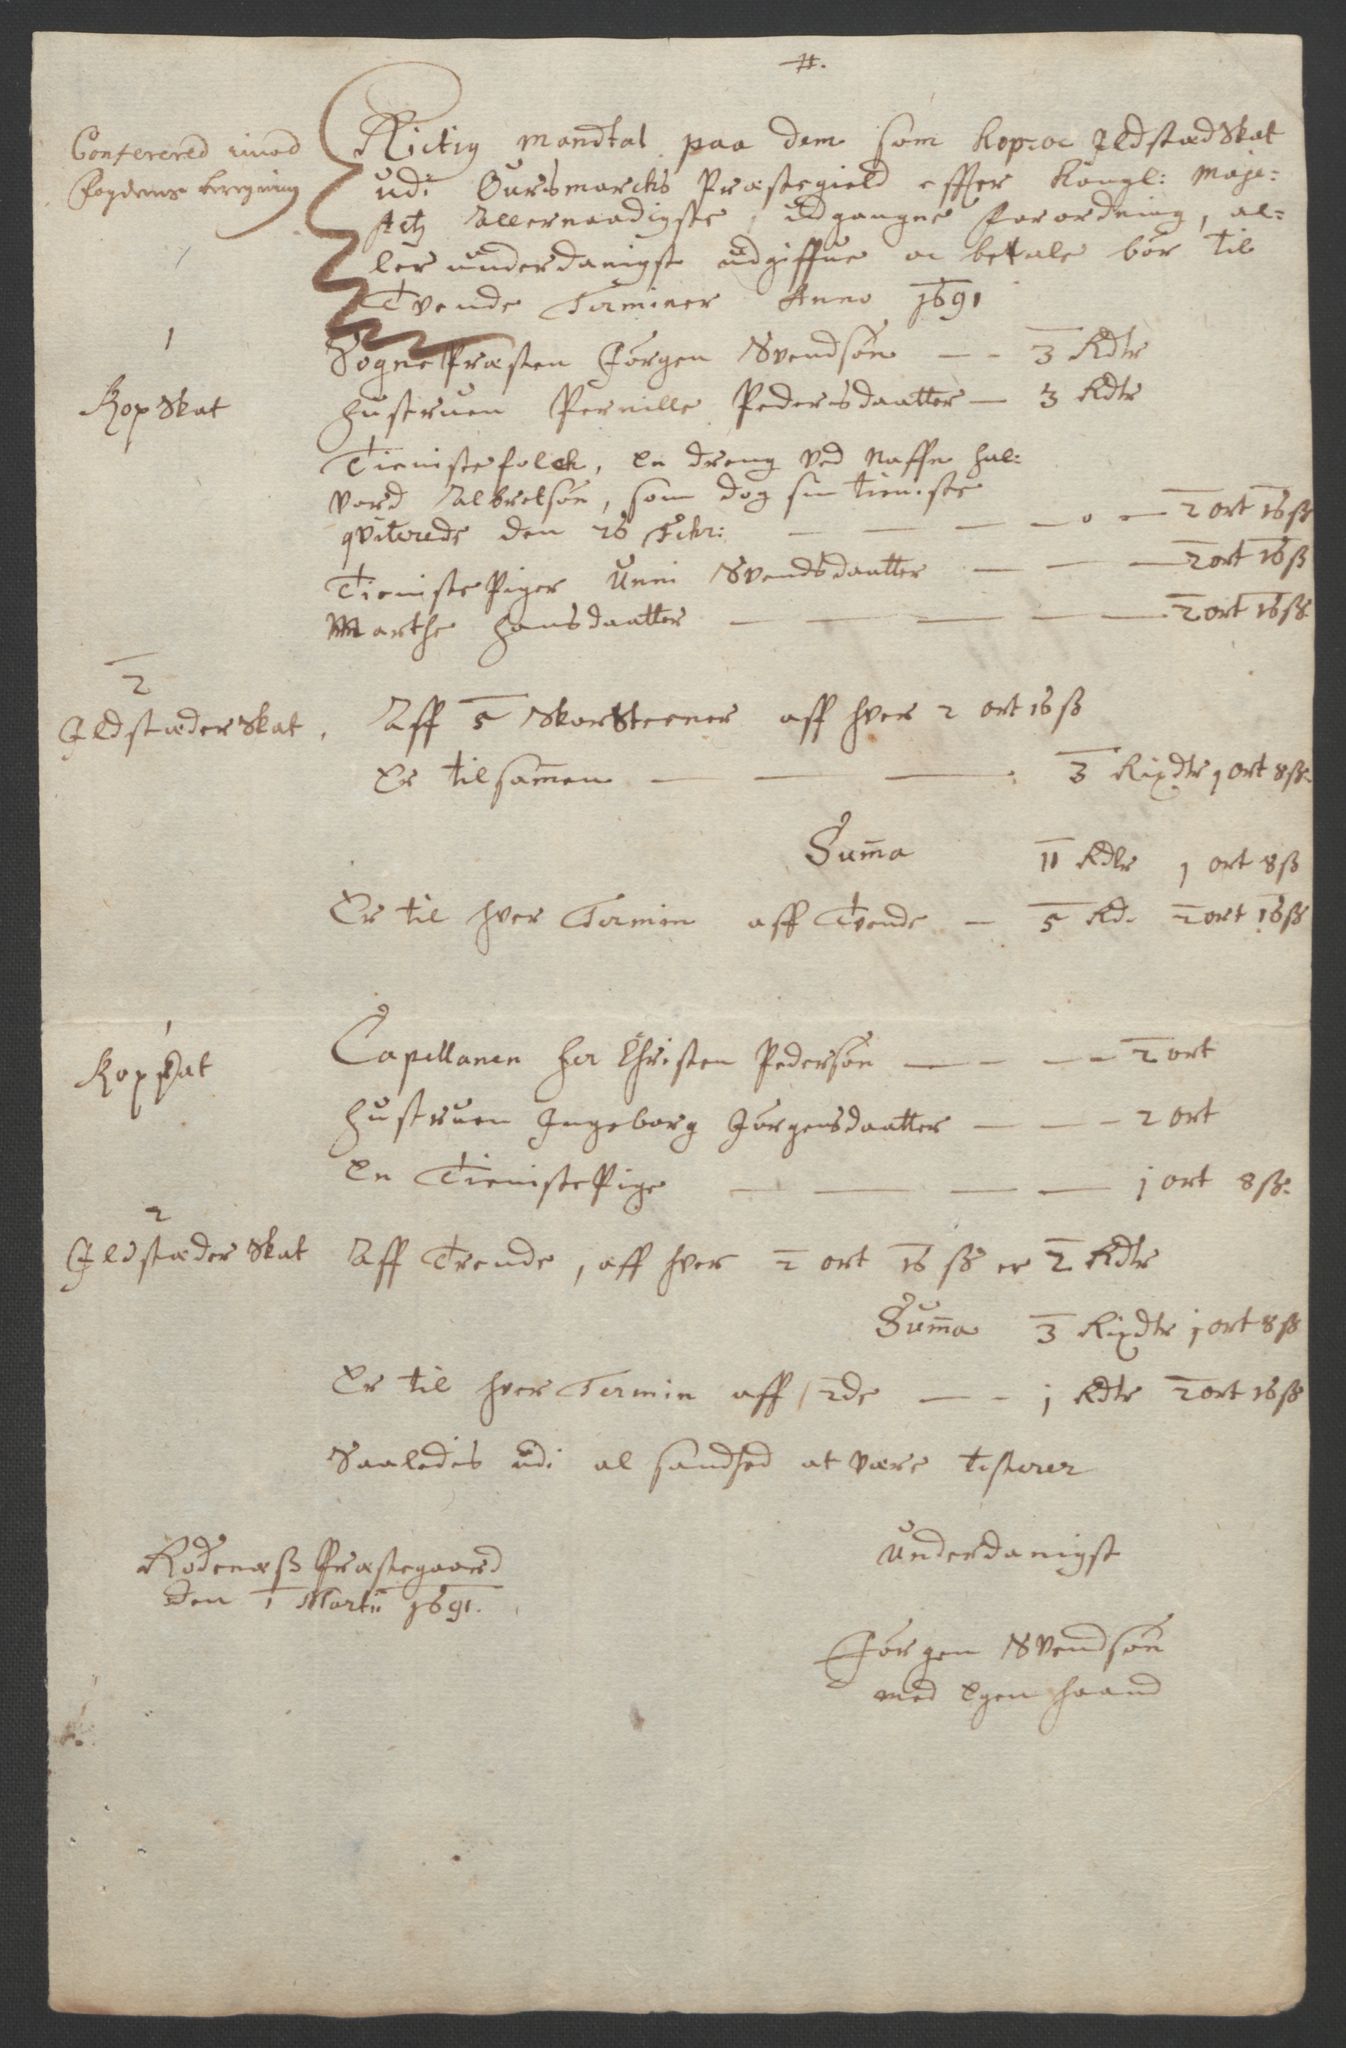 #.
Conferered imod
Fogdens beregning
Rictig mandtal paa dem som Kop oc Ildstæd Skat
udi Oursmarcks Præstegield effter Kongl: Maje-
stetz Allernaadigste udgangne forordning, al-
ler underdanigst udgiffue oc betale bør til
Tvende Terminer Anno 1691
1
Kop Skat
SognePræsten Jørgen Svendsøn — 3 Rdlr
Hustruen Pernille Pedersdaatter — 3 Rdlr
Tienistefolck, En dreng ved Naffn Hal-
vord Albretsøn, som dog sin tieniste
qviterede den 26 Febr: — 2 ort 16 ß
TienistePiger Unni Svendsdaatter — 2 ort 16 ß
Marthe Hansdaatter — 2 ort 16 ß
2
Ildstæder Skat,
Aff 5 Skorsteener aff hver 2 ort 16 ß
Er tilsamen — 3 Rixdlr 1 ort 8 ß
Suma 11 Rdlr 1 ort 8 ß
Er til hver Termin aff Tvende — 5 Rd. 2 ort 16 ß
1
Kopskat
Capellanen Her Christen Pedersøn — 2 ort
Hustruen Ingeborg Jørgensdaatter — 2 ort
En TienistePige — 1 ort 8 ß
2
Ildstæder Skat
Aff Trende, aff hver 2 ort 16 ß er 2 Rdlr
Suma 3 Rixdlr 1 ort 8 ß
Er til hver Termin aff 2de — 1 Rdlr 2 ort 16 ß
Saaledis udi al sandhed at være testerer
Rødenæß Præstegaard
den 1 Martii 1691.
Underdanigst
Jørgen Svendsøn
med Egen haand